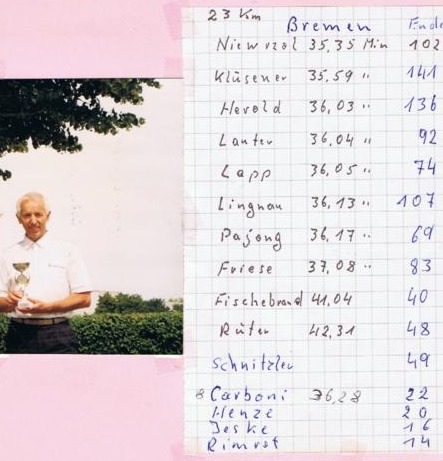 23 Km
Bremen Ende
Niewrzol 35,35 Min 102
Klüsener 35,59 " 141
Herold 36,03 " 136
Lanter 36,04 " 92
Lapp 36,05 " 74
Lingnau 36,13 " 107
Pajong 36,17 " 69
Friese 37,08 " 83
Fischebrand 41,04 40
Rüter 42,31 48
Schnitzler 49
8 Carboni 36,28 22
Henze 20
Jeske 16
Rimrot 14